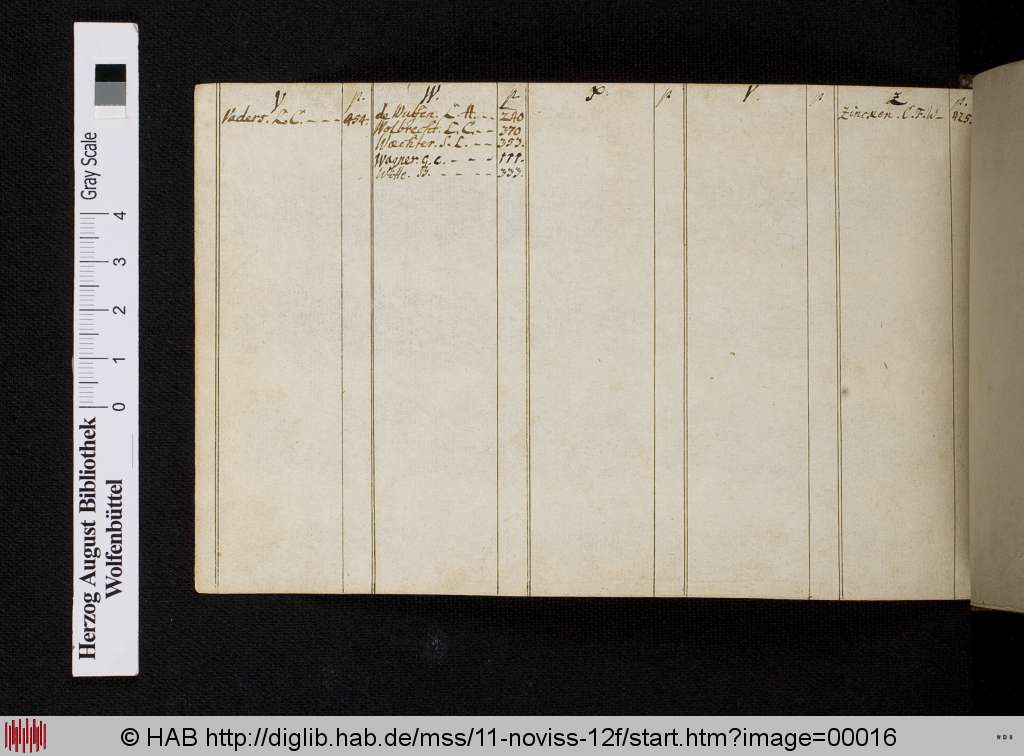 V. p.
Vaders. L. C. - - - 454.
W. p.
de Wulfen. C. A. - - 240
Wolbrecht. L. C. - - 370
Waechter. S. L. - - 353.
Wagner. g. c. - - - - 111.
Witte. B. - - - - - 333.
X. p
Y. p
Z p.
Zincken. C. F. W - 425.
Gray Scale
0 1 2 3 4
Herzog August Bibliothek
Wolfenbüttel
© HAB http://diglib.hab.de/mss/11-noviss-12f/start.htm?image=00016
WDB